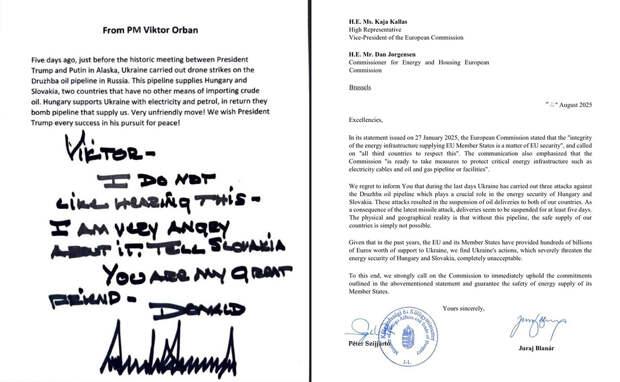 From PM Viktor Orban
Five days ago, just before the historic meeting between President
Trump and Putin in Alaska, Ukraine carried out drone strikes on the
Druzhba oil pipeline in Russia. This pipeline supplies Hungary and
Slovakia, two countries that have no other means of importing crude
oil. Hungary supports Ukraine with electricity and petrol, in return they
bomb pipeline that supply us. Very unfriendly move! We wish President
Trump every success in his pursuit for peace!
VIKTOR -
I DO NOT
LIKE HEARING THIS -
I AM VERY ANGRY
ABOUT IT. TELL SLOVAKIA
YOU ARE MY GREAT
FRIEND - DONALD
H.E. Ms. Kaja Kallas
High Representative
Vice-President of the European Commission
H.E. Mr. Dan Jørgensen
Commissioner for Energy and Housing European
Commission
Brussels
August 2025
Excellencies,
In its statement issued on 27 January 2025, the European Commission stated that the "integrity
of the energy infrastructure supplying EU Member States is a matter of EU security", and called
on "all third countries to respect this". The communication also emphasized that the
Commission "is ready to take measures to protect critical energy infrastructure such as
electricity cables and oil and gas pipeline or facilities".
We regret to inform You that during the last days Ukraine has carried out three attacks against
the Druzhba oil pipeline which plays a crucial role in the energy security of Hungary and
Slovakia. These attacks resulted in the suspension of oil deliveries to both of our countries. As
a consequence of the latest missile attack, deliveries seem to be suspended for at least five days.
The physical and geographical reality is that without this pipeline, the safe supply of our
countries is simply not possible.
Given that in the past years, the EU and its Member States have provided hundreds of billions
of Euros worth of support to Ukraine, we find Ukraine's actions, which severely threaten the
energy security of Hungary and Slovakia, completely unacceptable.
To this end, we strongly call on the Commission to immediately uphold the commitments
outlined in the abovementioned statement and guarantee the safety of energy supply of its
Member States.
Yours sincerely,
Péter Szijjártó
Juraj Blanár